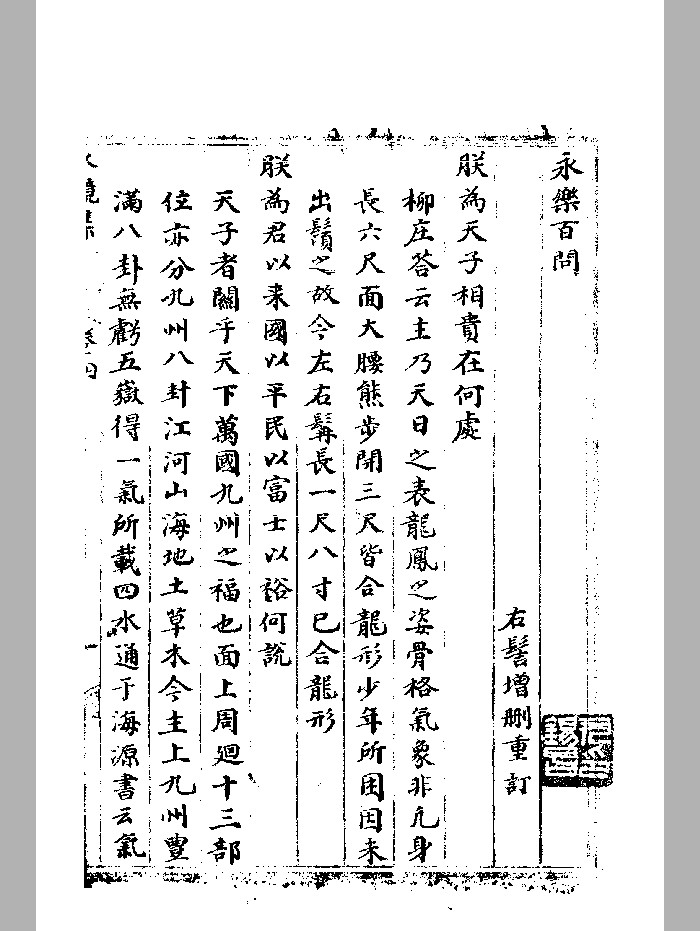 永樂百問
右髻增刪重訂
朕為天子相貴在何處
柳庄答云主乃天日之表龍鳳之姿骨格氣象非凡身
長六尺面大腰熊步開三尺皆合龍形少年所困因未
出鬚之故今左右鬅長一尺八寸已合龍形
朕為君以来國以平民以富士以裕何說
天子者關乎天下萬國九州之福也面上周廻十三部
位亦分九州八卦江河山海地土草木今主上九州豐
滿八卦無虧五嶽得一氣所載四水通于海源書云氣
水鏡集
卷四